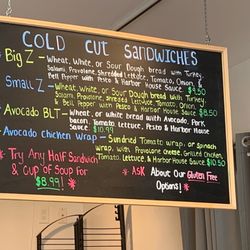 COLD CUT SANDWICHES
Big Z - Wheat, White, or Sour Dough bread with Turkey,
Salami, Provolone, Shredded Lettuce, Tomato, Onion, &
Bell Pepper with Pesto & Harbor House Sauce $9.50
Small Z - Wheat, White, or Sour Dough Bread with Turkey,
Salami, Provolone, Shredded Lettuce, Tomato, Onion,
& Bell Pepper with Pesto & Harbor House Sauce $8.50
Avocado BLT - Wheat, or white bread with Avocado, Pork
bacon, Tomato, Lettuce, Pesto & Harbor House
Sauce $10.99
Avocado Chicken Wrap - Sundried Tomato wrap, or Spinach
wrap, with, Provolone cheese, Grilled Chicken,
Tomato, Lettuce, & Harbor House Sauce $10.50
* Try Any Half Sandwich
& Cup of Soup For
$8.99! *
* ASK About Our Gluten Free
Options! *